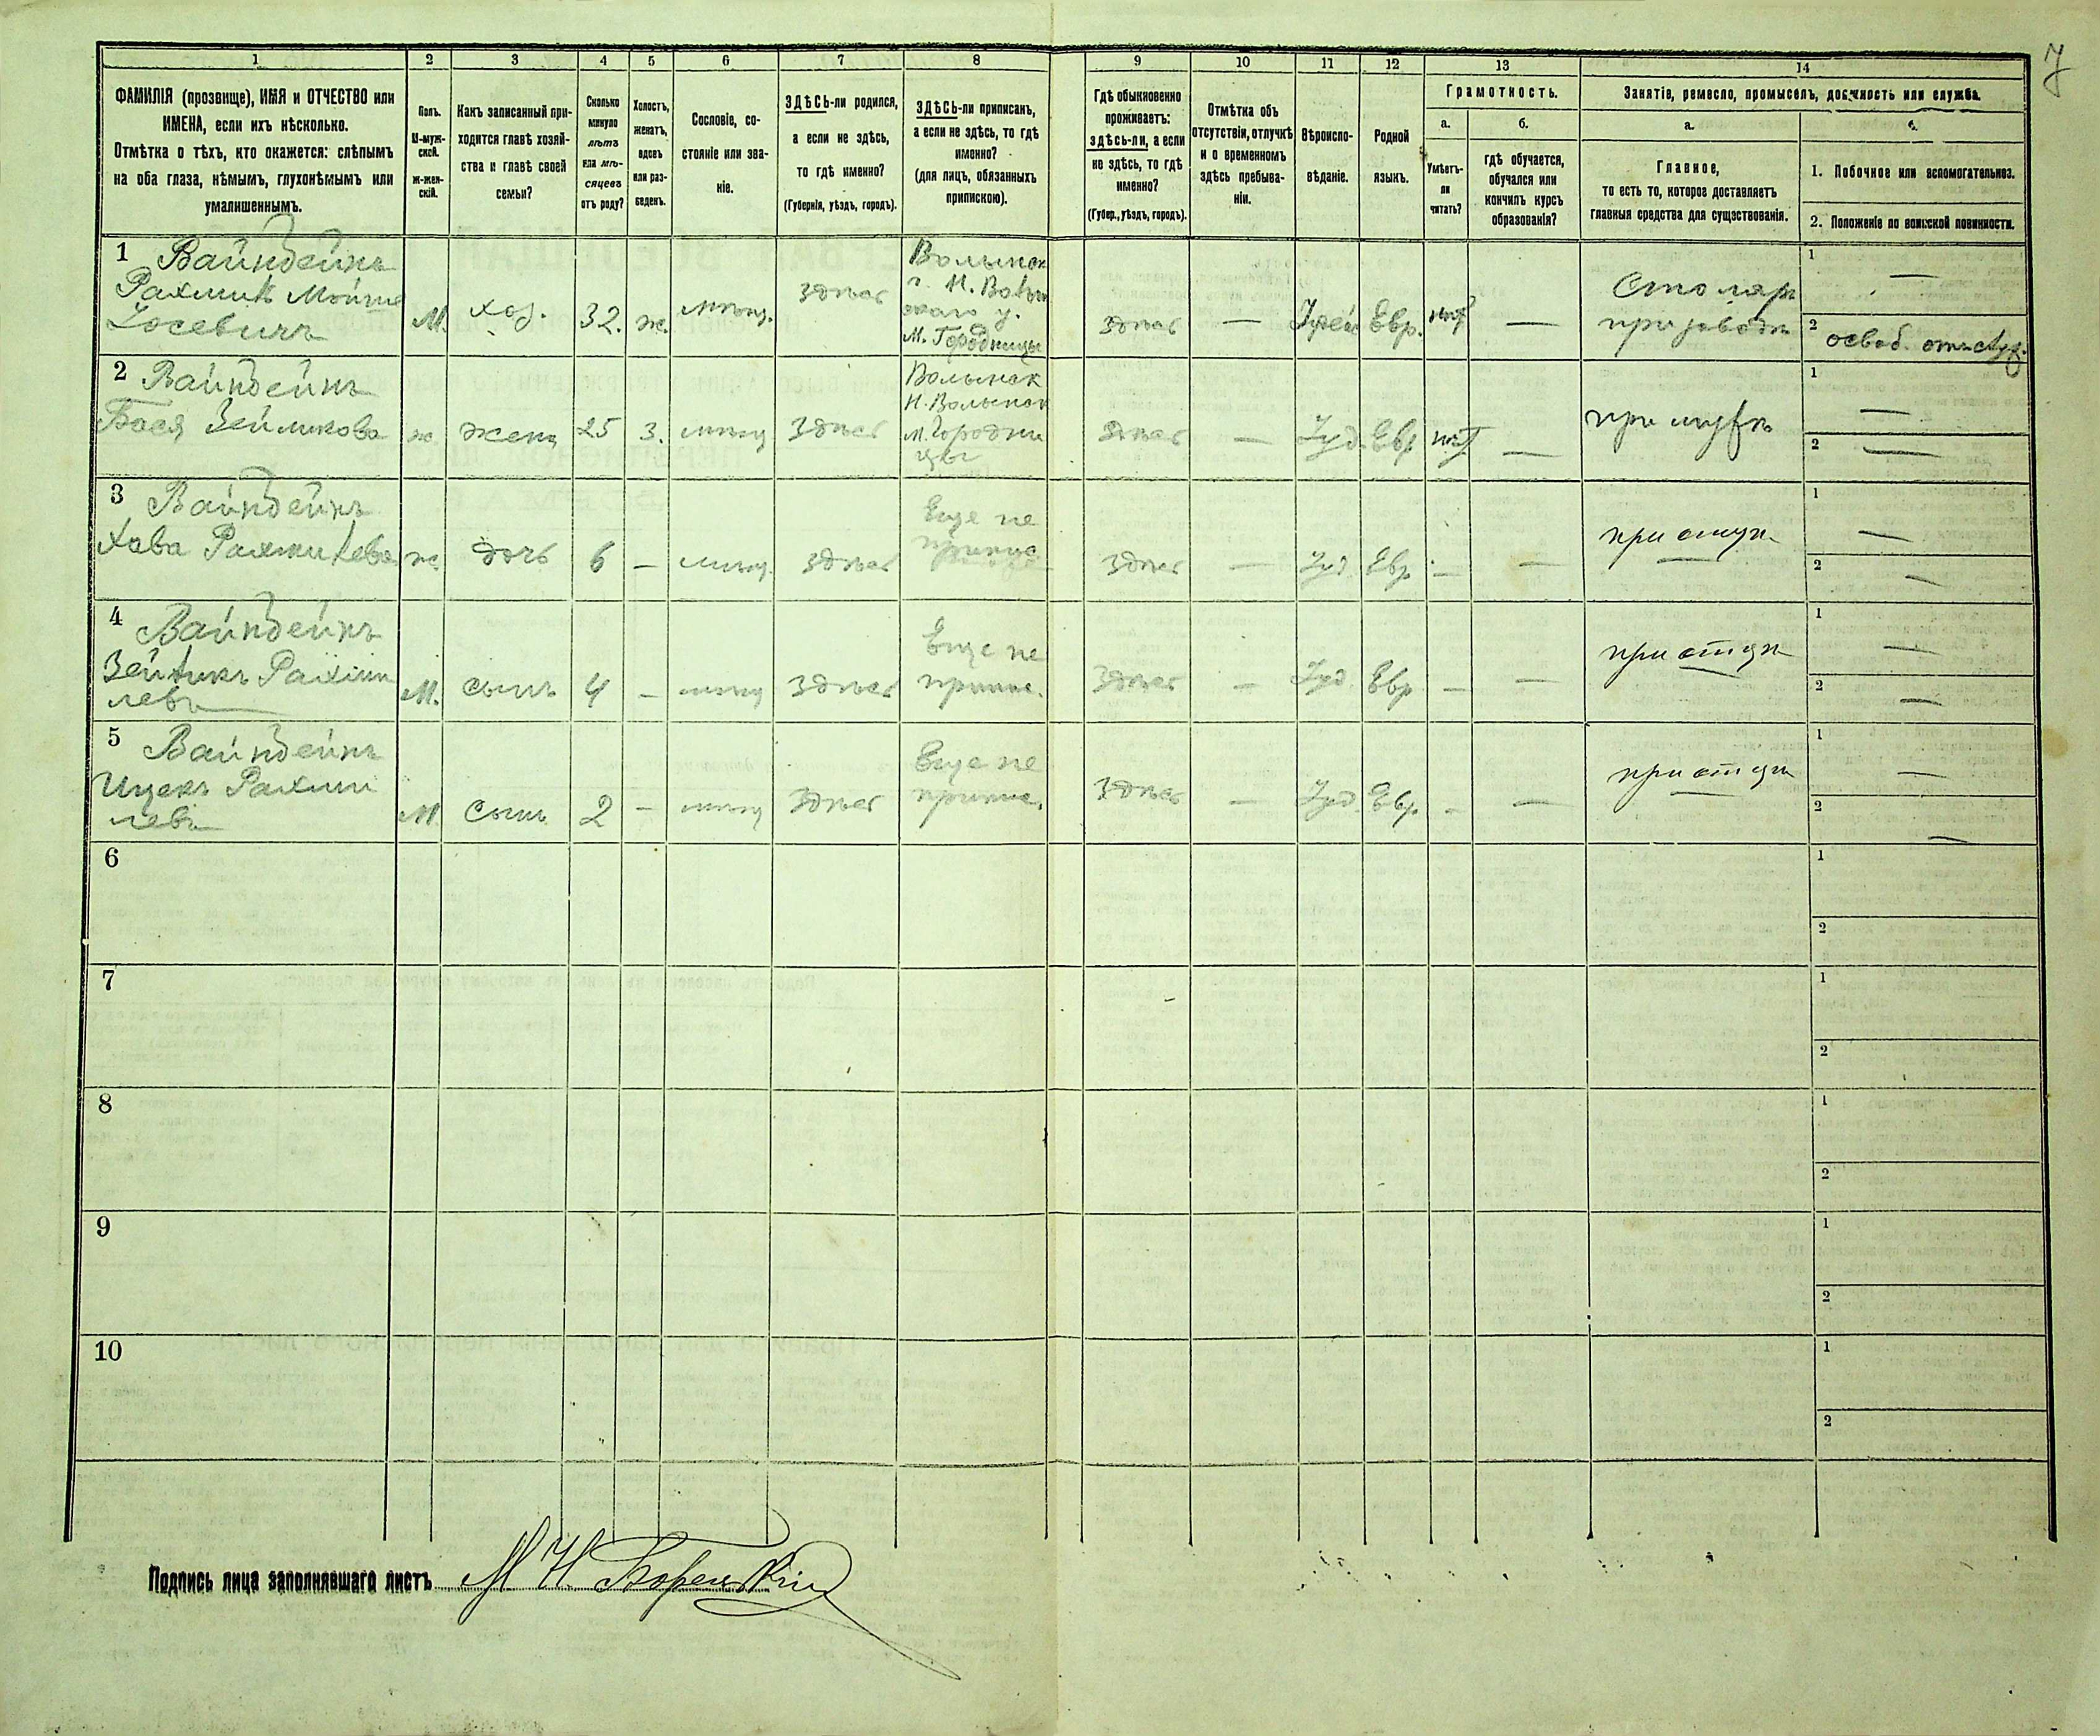 7
1 2 3 4 5 6 7 8 9 10 11 12 13 14
ФАМИЛІЯ (прозвище), ИМЯ и ОТЧЕСТВО или
ИМЕНА, если ихъ нѣсколько.
Отмѣтка о тѣхъ, кто окажется: слѣпымъ
на оба глаза, нѣмымъ, глухонѣмымъ или
умалишеннымъ.
Полъ.
М-муж-
ской.
ж-жен-
скій.
Какъ записанный при-
ходится главѣ хозяй-
ства и главѣ своей
семьи?
Сколько
минуло
лѣтъ
или мѣ-
сяцевъ
отъ роду?
Холостъ,
женатъ,
вдовъ
или раз-
веденъ.
Сословіе, со-
стояніе или зва-
ніе.
ЗДѢСЬ-ли родился,
а если не здѣсь,
то гдѣ именно?
(Губернія, уѣздъ, городъ).
ЗДѢСЬ-ли приписанъ,
а если не здѣсь, то гдѣ
именно?
(для лицъ, обязанныхъ
припискою).
Гдѣ обыкновенно
проживаетъ:
здѣсь-ли, а если
не здѣсь, то гдѣ
именно?
(Губер., уѣздъ, городъ).
Отмѣтка объ
отсутствіи, отлучкѣ
и о временномъ
здѣсь пребыва-
ніи.
Вѣроиспо-
вѣданіе.
Родной
языкъ.
Грамотность.
а.
Умѣетъ-
ли
читать?
б.
гдѣ обучается,
обучался или
кончилъ курсъ
образованія?
Занятіе, ремесло, промыселъ, должность или служба.
а.
Главное,
то есть то, которое доставляетъ
главныя средства для существованія.
1. Побочное или вспомогательное.
2. Положеніе по воинской повинности.
1 Вайндейнъ
Рахмиль Мойше
Іосевичъ
М. хоз. 32. ж. мѣщ. здѣсь
Волынск
г. Н. Волын
скаго у.
М. Городницы
здѣсь — Евр. нѣт —
Столяр
при заводѣ
1 —
2 освоб.
2 Вайндейнъ
Бася Зейликова
ж жена 25 З. мѣщ здѣсь
Волынск
Н. Волынск
М. Городни
цы
здѣсь — Іуд. Евр нѣт —
при мужѣ
1 —
2 —
3 Вайндейнъ
Хава Рахмилева
ж. дочь 6 — мѣщ. здѣсь
Еще не
припис
здѣсь — Іуд Евр. — —
при отцѣ
1 —
2 —
4 Вайндейнъ
Зейликъ Рахми
левъ
М. сынъ 4 — мѣщ здѣсь
Еще не
припис.
здѣсь — Іуд. Евр — —
при отцѣ
1 —
2 —
5 Вайндейнъ
Ицекъ Рахми
левъ
М. сынъ 2 — мѣщ здѣсь
Еще не
припис.
здѣсь — Іуд. Евр. - —
при отцѣ
1 —
2 —
6
1
2
7
1
2
8
1
2
9
1
2
10
1
2
Подпись лица заполнявшаго листъ